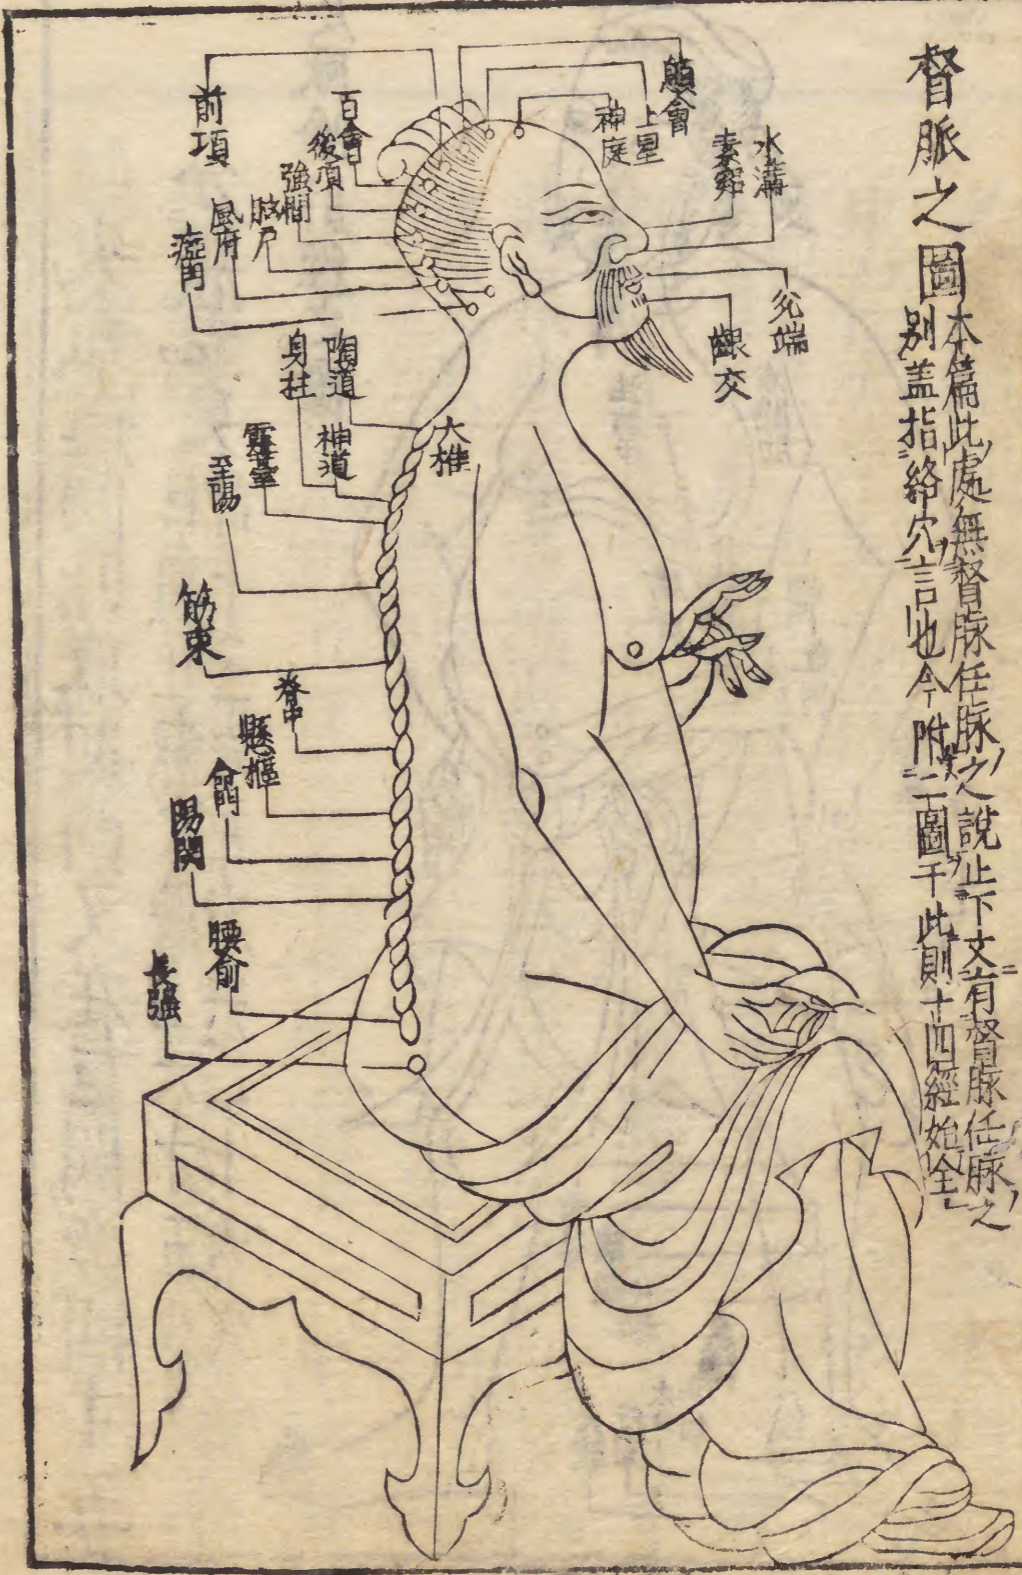 督脈之圖
本篇此處無督脉任脉之說止下文有督脉任脉之
别盖指絡穴言也今附二圖于此則十四經始全
水溝
素窌
顖會
上星
神庭
兊端
齦交
前項
百會
後項
強間
腦戶
風府
瘂門
大椎
陶道
身柱
神道
靈臺
至陽
筋束
脊中
懸樞
命門
陽関
腰俞
長強